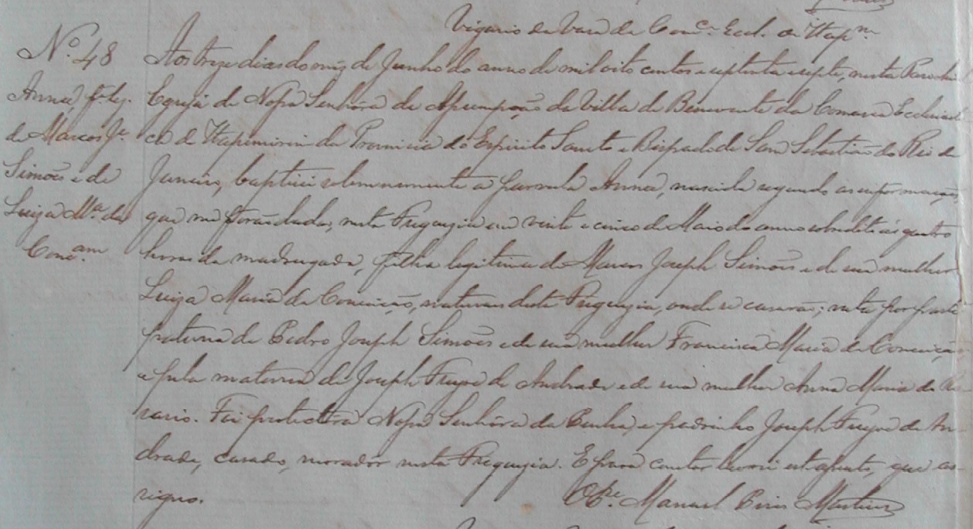 Vigario da Vara da Com.ca Eccl. de Itap.m
N.º 48
Anna, f. leg.
de Marcos J.e
Simões e de
Luiza M.a da
Conc.am
Aos treze dias do mez de Junho do anno de mil oito centos e setenta e sete, nesta Parochial
Egreja de Nossa Senhora da Assumpção da Villa de Benevente da Comarca Ecclesiasti
ca de Itapemirim da Provincia do Espirito Santo e Bispado de Sam Sebastião do Rio de
Janeiro, baptisei solemnemente a parvula Anna, nascida segundo as informações,
que me forão dadas, nesta Freguezia em vinte e cinco de Maio do anno sobredito ás quatro
horas da madrugada, filha legitima de Marcos Joseph Simões e de sua mulher
Luiza Maria da Conceição, naturaes desta Freguezia, onde se casarão; neta por parte
paterna de Pedro Joseph Simões e de sua mulher Francisca Maria da Conceição
e pela materna de Joseph de Andrade e de sua mulher Anna Maria do Ro
sario. Foi protectora Nossa Senhora da Penha, e padrinho Joseph de An
drade, casado, morador nesta Freguezia. E para constar lavrei este assento, que as
signo.
Manuel Pires Martins